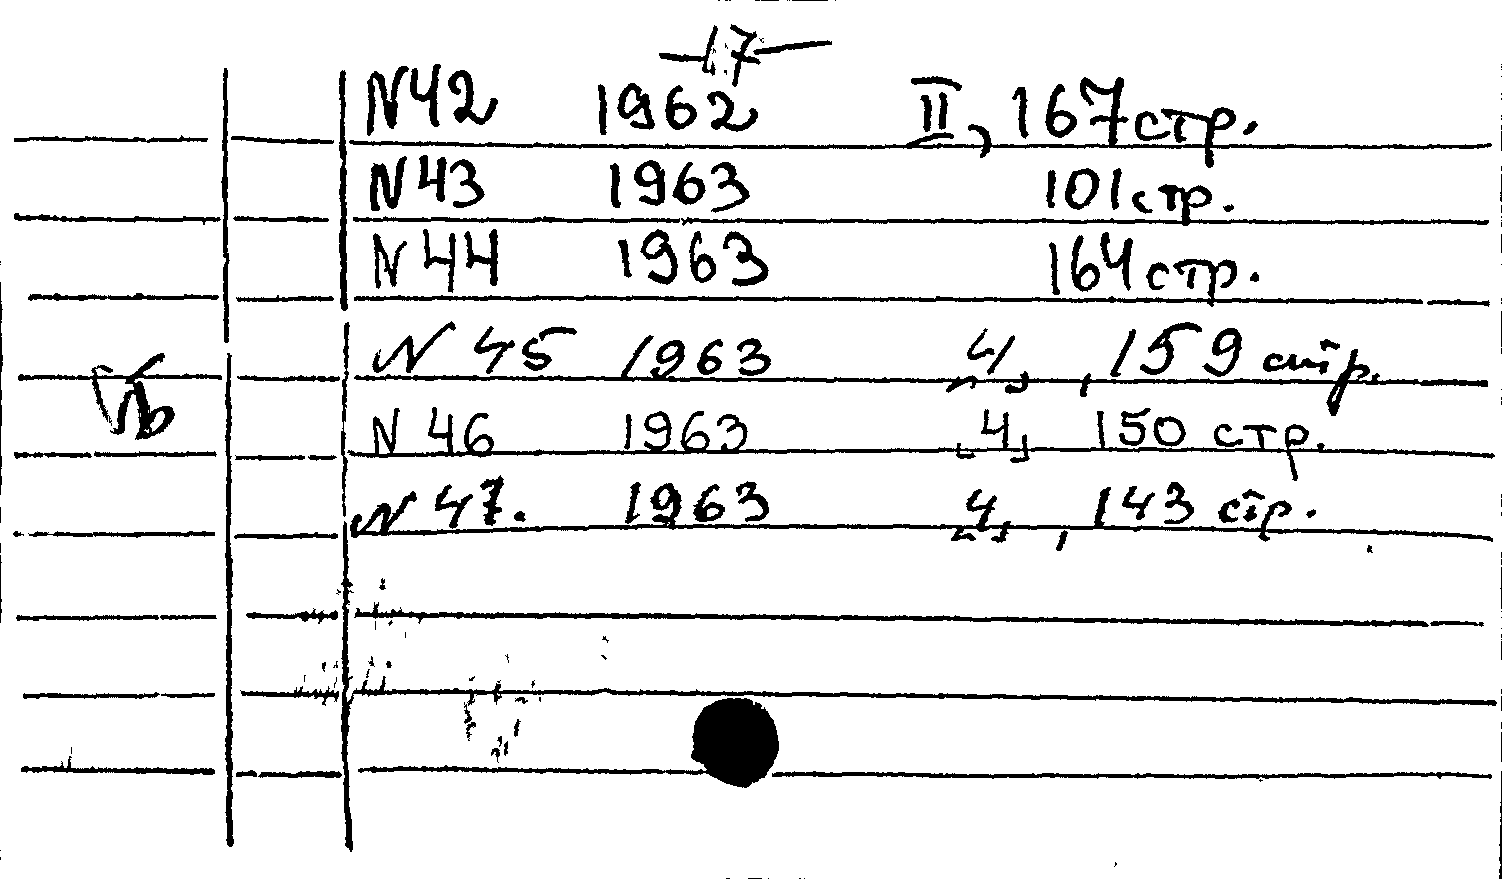 -17-
N42 1962 II, 167 стр.
N43 1963 101 стр.
N44 1963 164 стр.
N 45 1963 [4], 159 стр.
N 46 1963 [4] 150 стр.
N 47. 1963 [4], 143 стр.